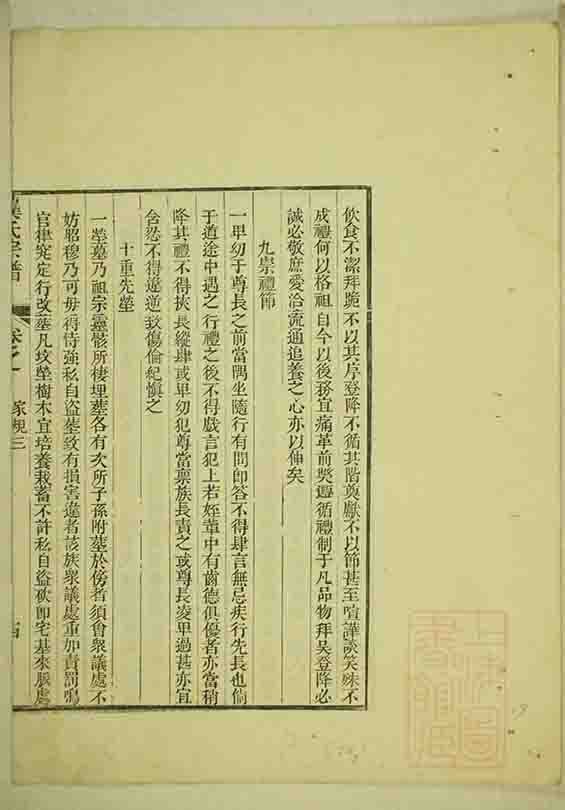 飲食不潔拜跪不以其序登降不循其階奠獻不以節甚至喧譁談笑殊不
成禮何以格祖自今以後務宜痛革前獘遵循禮制于凡品物拜吴登降必
誠必敬庶愛洽流通追養之心亦以伸矣
九崇禮節
一甲幼于尊長之前當隅坐隨行有問即答不得肆言無忌疾行先長也倘
于道途中遇之行禮之後不得戲言犯上若姪輩中有齒德俱優者亦當稍
降其禮不得挾長縱肆或甲幼犯尊當禀族長責之或尊長凌甲過甚亦宜
含忿不得違逆致傷倫紀愼之
十重先塋
一塋墓乃祖宗靈骸所棲埋葬各有次所子孫附葬於傍者須會衆議處不
妨昭穆乃可毋得恃強私自盜葬致有損害違者該族衆議處重加責罰鳴
官律究定行改葬凡坟塋樹木宜培養栽蓄不許私自盜砍即宅基來脈處
氏宗譜
卷之一
家規三